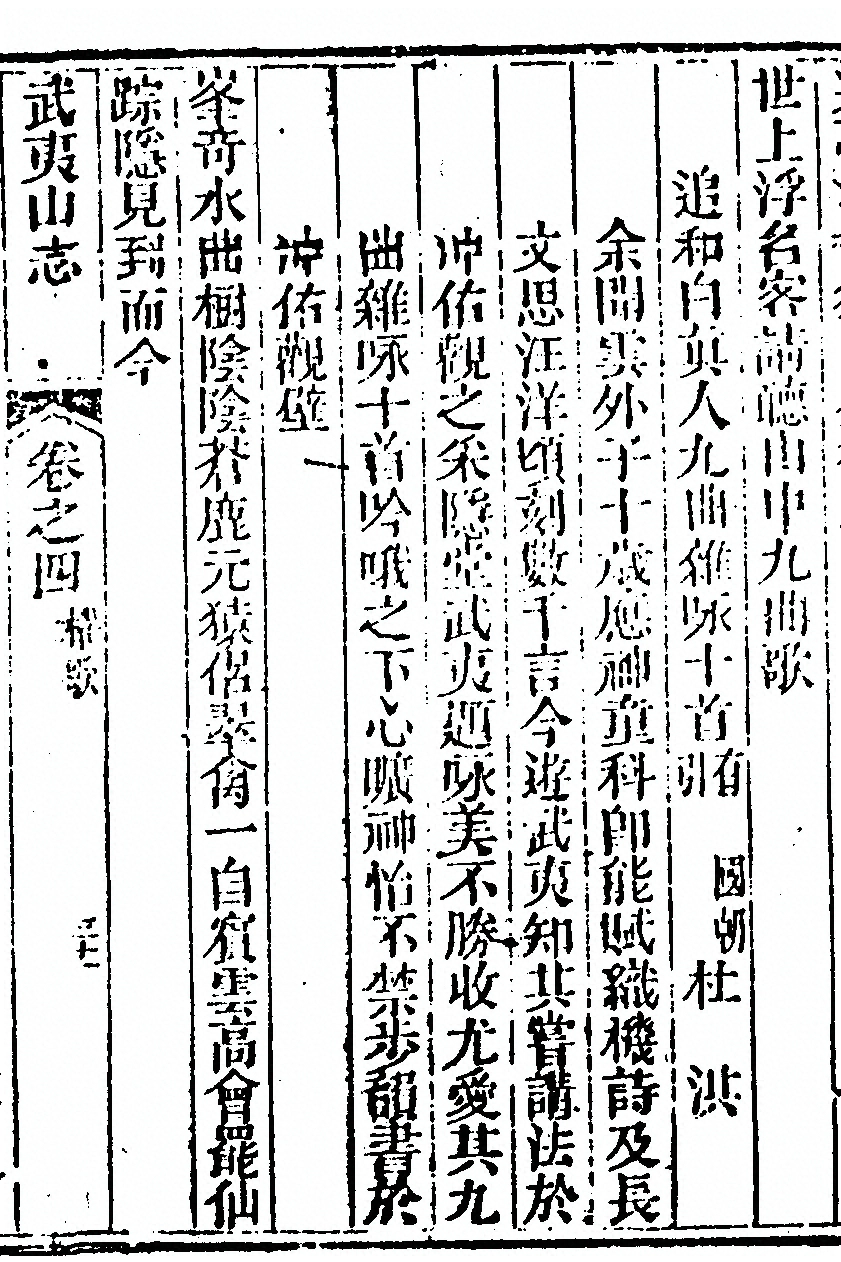 世上浮名客請聽山中九曲歌
追和白真人九曲雜咏十首有引 國朝 杜 洪
余聞雲外子十歲應神童科卽能賦織機詩及長
文思汪洋頃刻數千言今遊武夷知其嘗講法於
冲佑觀之朵隱堂武夷題咏美不勝收尤愛其九
曲雜咏十首吟哦之下心曠神怡不禁步韻書於
冲佑觀壁
峯奇水曲樹陰陰蒼鹿元猿侶翠禽一自宿雲高會罷仙
踪隱見到而今
武夷山志 卷之四 櫂歌